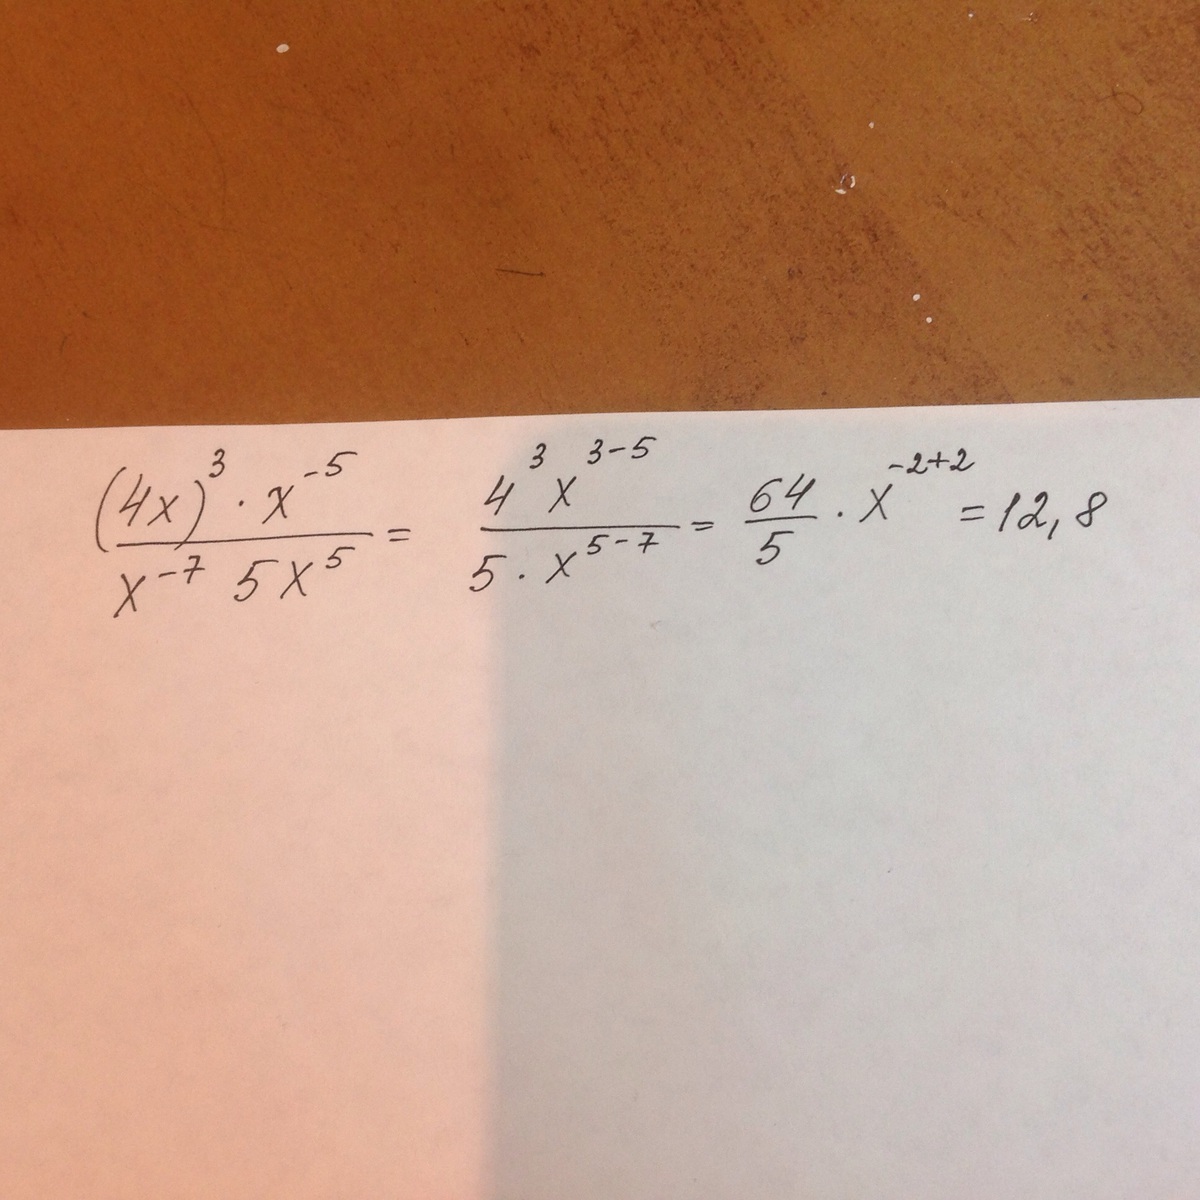 (4x)³ · x⁻⁵ / x⁻⁷ 5x⁵ = 4³ x³⁻⁵ / 5 · x⁵⁻⁷ = 64/5 · x⁻²⁺² = 12,8